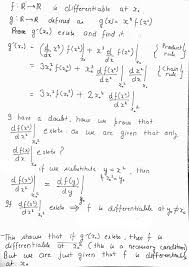 f: R→R is differentiable at x₀
g: R→R defined as g(x) = x³ f(x²)
Prove g'(x₀) exists and find it.
g'(x₀) = (d/dx x³) f(x²) + x³ d/dx f(x²) (Product rule)
= 3x² f(x²) + x³ d f(x²)/dx² | dx²/dx | (Chain rule)
= 3x₀² f(x₀²) + 2x₀⁴ d f(x²)/dx² |
I have a doubt, how we prove that
df(x²)/dx² | exists as we are given that only
df(x)/dx | exists?
If we substitute y = x², then
df(x²)/dx² | = df(y)/dy |
If df(x²)/dx² | exists ⇒ f is differentiable at y₀ ≠ x₀
This shows that if g'(x₀) exists, then f is
differentiable at x₀² (this is a necessary condition)
But we are just given that f is differentiable
at x₀